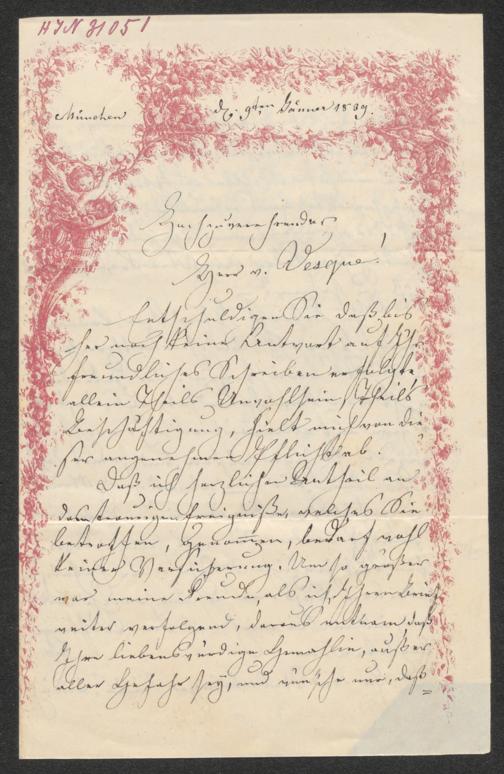 HIN 31051
München
d. 9ten Jänner 1839.
Hochzuverehrender
Herr v. Vesque!
Entschuldigen Sie daß bis
her noch keine Antwort auf Ihr
freundliches Schreiben erfolgte
allein Theils Unwohlsein, Theils
Beschäftigung, hielt mich von die
ser angenehmen Pflicht ab.
Daß ich herzlichen Antheil an
dem traurigen Ereigniße, welches Sie
betroffen, genommen, bedarf wohl
keiner Versicherung. Um so größer
war meine Freude als ich, Ihren Brief
weiter verfolgend, daraus entnam daß
Ihre liebenswürdige Gemahlin, außer
aller Gefahr sey, und wünsche nur, daß